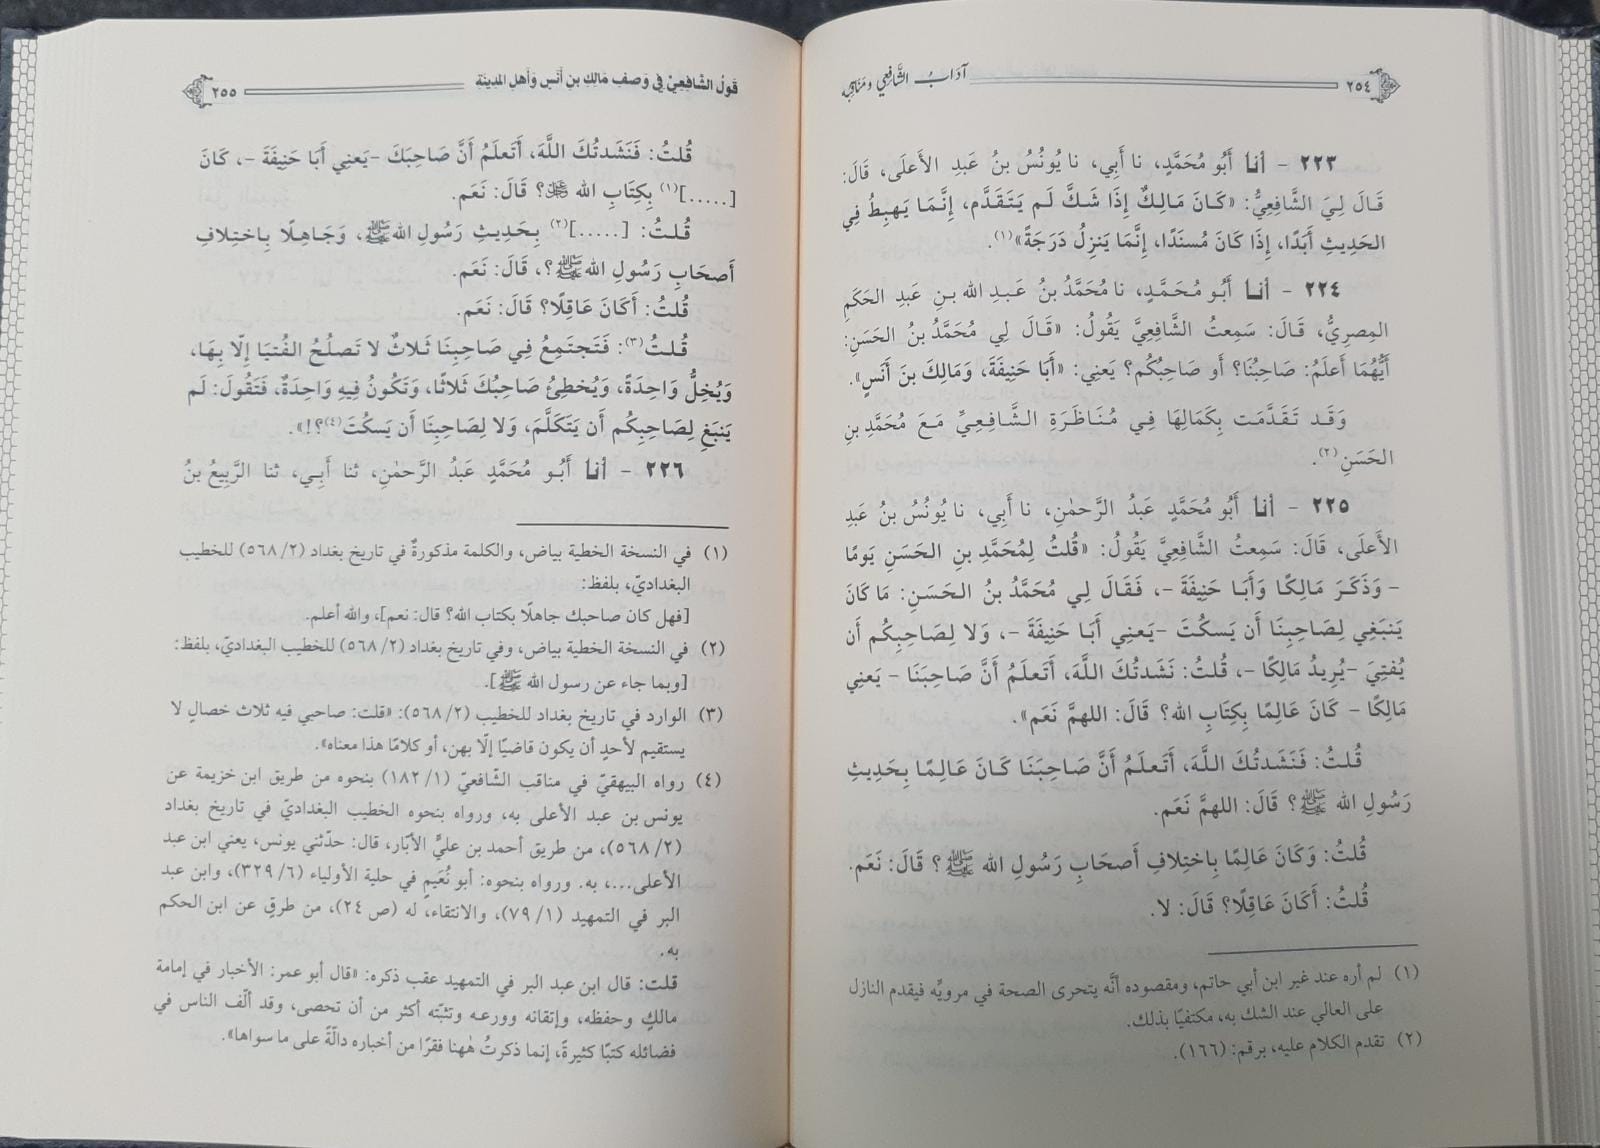 ٢٥٤ آدَابُ الشَّافِعِي وَمَنَاقِبُه
٢٢٣ - أنا أَبُو مُحَمَّدٍ، نا أَبِي، نا يُونُسُ بنُ عَبدِ الأَعلَى، قَالَ:
قَالَ لِيَ الشَّافِعِيُّ: «كَانَ مَالِكٌ إِذَا شَكَّ لَم يَتَقَدَّم، إِنَّمَا يَهبِطُ فِي
الحَدِيثِ أَبَدًا، إِذَا كَانَ مُسنَدًا، إِنَّمَا يَنزِلُ دَرَجَةً»(١).
٢٢٤ - أنا أَبُو مُحَمَّدٍ، نا مُحَمَّدُ بنُ عَبدِ الله بنِ عَبدِ الحَكَمِ
المِصرِيُّ، قَالَ: سَمِعتُ الشَّافِعِيَّ يَقُولُ: «قَالَ لِي مُحَمَّدُ بنُ الحَسَنِ:
أَيُّهُمَا أَعلَمُ: صَاحِبُنَا؟ أَو صَاحِبُكُم؟ يَعنِي: «أَبَا حَنِيفَةَ، وَمَالِكَ بنَ أَنَسٍ».
وَقَد تَقَدَّمَت بِكَمَالِهَا فِي مُنَاظَرَةِ الشَّافِعِيِّ مَعَ مُحَمَّدِ بنِ
الحَسَنِ(٢).
٢٢٥ - أنا أَبُو مُحَمَّدٍ عَبدُ الرَّحمٰنِ، نا أَبِي، نا يُونُسُ بنُ عَبدِ
الأَعلَى، قَالَ: سَمِعتُ الشَّافِعِيَّ يَقُولُ: «قُلتُ لِمُحَمَّدِ بنِ الحَسَنِ يَومًا
- وَذَكَرَ مَالِكًا وَأَبَا حَنِيفَةَ -، فَقَالَ لِي مُحَمَّدُ بنُ الحَسَنِ: مَا كَانَ
يَنبَغِي لِصَاحِبِنَا أَن يَسكُتَ -يَعنِي أَبَا حَنِيفَةَ -، وَلَا لِصَاحِبِكُم أَن
يُفتِيَ -يُرِيدُ مَالِكًا -، قُلتُ: نَشَدتُكَ اللَّهَ، أَتَعلَمُ أَنَّ صَاحِبَنَا - يَعنِي
مَالِكًا - كَانَ عَالِمًا بِكِتَابِ الله؟ قَالَ: اللهمَّ نَعَم».
قُلتُ: فَنَشَدتُكَ اللَّهَ، أَتَعلَمُ أَنَّ صَاحِبَنَا كَانَ عَالِمًا بِحَدِيثِ
رَسُولِ الله ﷺ؟ قَالَ: اللهمَّ نَعَم.
قُلتُ: وَكَانَ عَالِمًا بِاختِلَافِ أَصحَابِ رَسُولِ الله ﷺ؟ قَالَ: نَعَم.
قُلتُ: أَكَانَ عَاقِلًا؟ قَالَ: لا.
(١) لم أره عند غير ابن أبي حاتم، ومقصوده أنَّه يتحرى الصحة في مرويِّه فيقدم النازل
على العالي عند الشك به، مكتفيًا بذلك.
(٢) تقدم الكلام عليه، برقم: (١٦٦).
قَولُ الشَّافِعِيِّ فِي وَصفِ مَالِكِ بنِ أَنَسٍ وَأَهلِ المَدِينَةِ ٢٥٥
قُلتُ: فَنَشَدتُكَ اللَّهَ، أَتَعلَمُ أَنَّ صَاحِبَكَ -يَعنِي أَبَا حَنِيفَةَ -، كَانَ
[.....](١) بِكِتَابِ الله ﷻ؟ قَالَ: نَعَم.
قُلتُ: [.....](٢) بِحَدِيثِ رَسُولِ اللهﷺ، وَجَاهِلًا بِاختِلافِ
أَصحَابِ رَسُولِ اللهﷺ؟، قَالَ: نَعَم.
قُلتُ: أَكَانَ عَاقِلًا؟ قَالَ: نَعَم.
قُلتُ(٣): فَتَجتَمِعُ فِي صَاحِبِنَا ثَلاثٌ لا تَصلُحُ الفُتيَا إِلّا بِهَا،
وَيُخِلُّ وَاحِدَةً، وَيُخطِئُ صَاحِبُكَ ثَلاثًا، وَتَكُونُ فِيهِ وَاحِدَةٌ، فَتَقُولَ: لَم
يَنبَغِ لِصَاحِبِكُم أَن يَتَكَلَّمَ، وَلا لِصَاحِبِنَا أَن يَسكُتَ(٤)؟!».
٢٢٦ - أنا أَبُو مُحَمَّدٍ عَبدُ الرَّحمٰنِ، ثنا أَبِي، ثنا الرَّبِيعُ بنُ
(١) في النسخة الخطية بياض، والكلمة مذكورةٌ في تاريخ بغداد (٢/ ٥٦٨) للخطيب
البغداديّ، بلفظ:
[فهل كان صاحبك جاهلًا بكتاب الله؟ قال: نعم]، والله أعلم.
(٢) في النسخة الخطية بياض، وفي تاريخ بغداد (٢/ ٥٦٨) للخطيب البغداديّ، بلفظ:
[وبما جاء عن رسول الله ﷺ].
(٣) الوارد في تاريخ بغداد للخطيب (٢/ ٥٦٨): «قلت: صاحبي فيه ثلاث خصالٍ لا
يستقيم لأحدٍ أن يكون قاضيًا إلّا بهن، أو كلامًا هذا معناه».
(٤) رواه البيهقيّ في مناقب الشّافعيّ (١/ ١٨٢) بنحوه من طريق ابن خزيمة عن
يونس بن عبد الأعلى به، ورواه بنحوه الخطيب البغداديّ في تاريخ بغداد
(٢/ ٥٦٨)، من طريق أحمد بن عليٍّ الأبّار، قال: حدّثني يونس، يعني ابن عبد
الأعلى...، به. ورواه بنحوه: أبو نُعَيمٍ في حلية الأولياء (٦/ ٣٢٩)، وابن عبد
البر في التمهيد (١/ ٧٩)، والانتقاء، له (ص ٢٤)، من طرقٍ عن ابن الحكم
به.
قلت: قال ابن عبد البر في التمهيد عقب ذكره: «قال أبو عمر: الأخبار في إمامة
مالكٍ وحفظه، وإتقانه وورعه وتثبّته أكثر من أن تحصى، وقد ألّف الناس في
فضائله كتبًا كثيرةً، إنما ذكرتُ هٰهنا فقرًا من أخباره دالّةً على ما سواها».